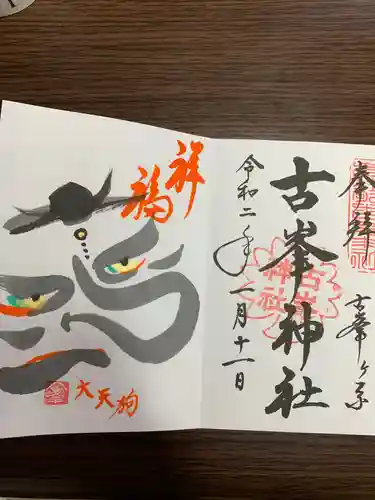 奉拝
古峯ヶ原
古峯神社
古峯神社
令和二年一月十一日
祥福
大天狗